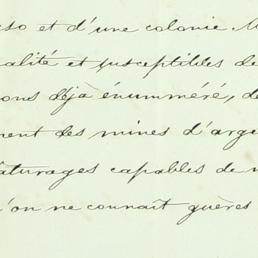 so et d'une colonie M
alité et susceptibles de
ons déjà énumméré, de
ment des mines d'arge
âturages capables de n
'on ne connaît guères